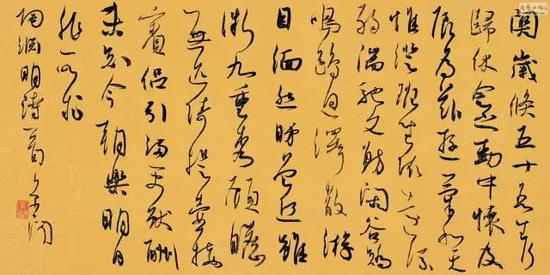 開歲倏五十吾生行
歸休念之動中懷及
辰為茲遊氣和天
惟澄班坐依遠流
弱湍馳文魴閑谷矯
鳴鷗迥澤散游
目緬然睇曾丘雖
微九重秀顧瞻
無匹儔提壺接
賓侶引滿更獻酬
未知今朝樂明日
非所求
陶淵明詩一首